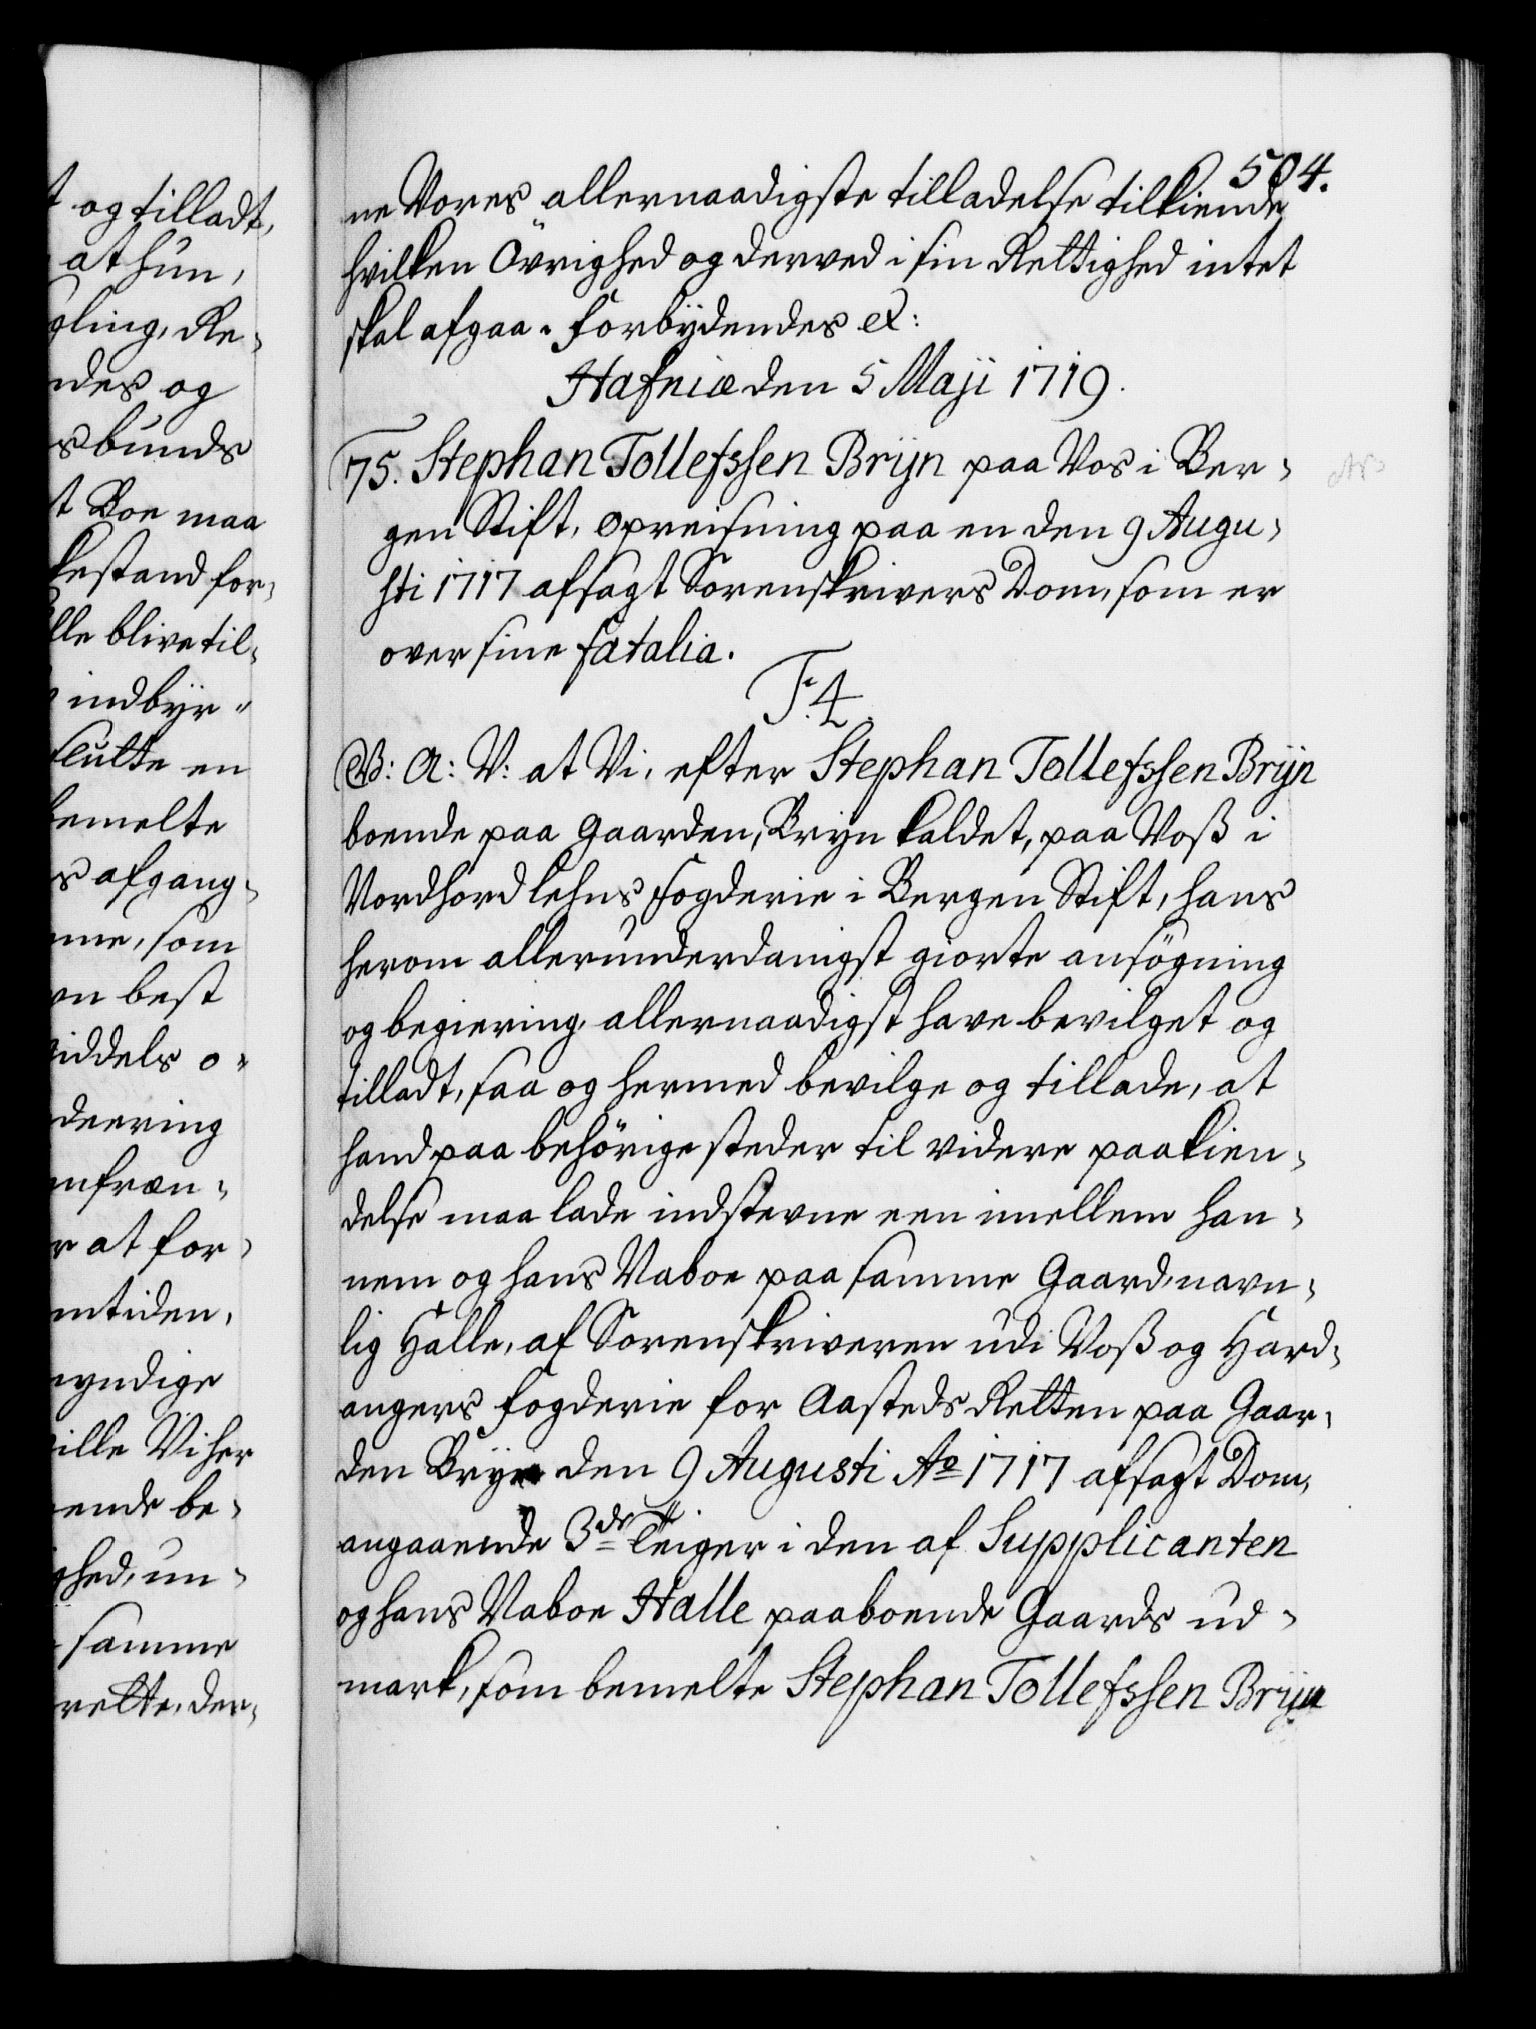 t og tilladt,
at hun,
gling, Re-
ndes og
sbunds
t Boe maa
kestand for-
lle blive til-
indbyr-
slutte en
bemelte
s afgang-
me, som
on best
iddels o-
deering
nfræn-
r at for-
mtiden,
myndige
ville Vi her
ende be-
ghed, un-
samme
rette, der-
504.
ne Vores allernaadigste tilladelse tilkiende
hvilken Övrighed og derved i sin Rettighed intet
skal afgaa. Forbÿdendes etc:
Hafniæ den 5 Maji 1719.
75. Stephan Tollefssen Brÿn paa Vos i Ber-
gen Stift, opreisning paa en den 9 Augu-
sti 1717 afsagt Sorenskrivers Dom, som er
over sine fatalia.
F. 4.
G. B: A: V: at Vi, efter Stephan Tollefssen Brÿn
boende paa Gaarden, Bryn kaldet, paa Voß i
Nordhordlehns Fogderie i Bergen Stift, hans
herom allerunderdanigst giorte ansögning
og begiering, allernaadigst have bevilget og
tilladt, saa og hermed bevilge og tillade, at
hand paa behörige steder til videre paakien-
delse maa lade indstevne een imellem han-
nem og hans Naboe paa samme Gaard, navn-
lig Halle, af Sorenskriveren udi Voß og Hard-
angers Fogderie for Aasteds Retten paa Gaar-
den Bryn den 9 Augusti Ao 1717 afsagt Dom,
angaaende 3de Teiger i den af Supplicanten
og hans Naboe Halle paaboende Gaards ud-
mark, som bemelte Stephan Tollefssen Brÿn